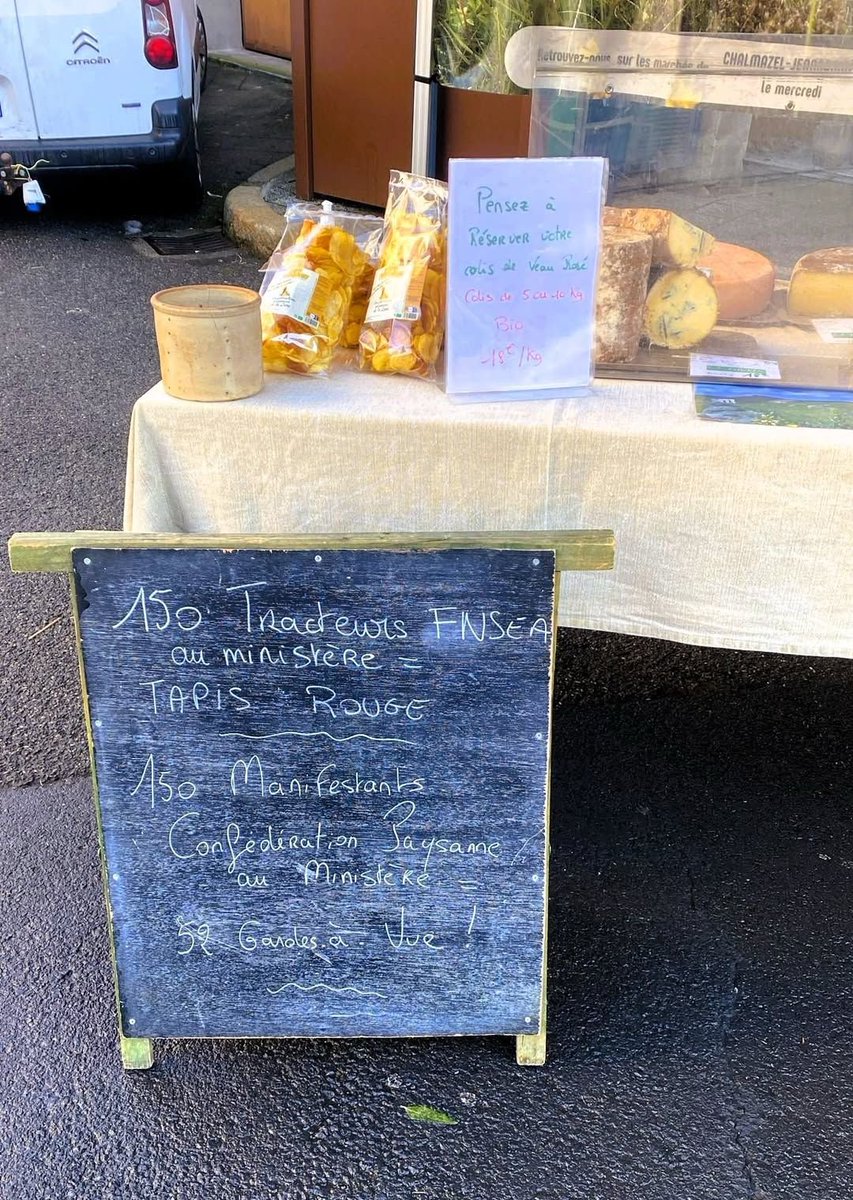 CITROËN
Retrouvez-nous sur les marchés de CHALMAZEL-JEANS
le mercredi
Pensez à
Réserver votre
colis de Veau Rosé
Colis de 5 ou 10 Kg
Bio
18€/Kg
150 Tracteurs FNSEA
au ministère =
TAPIS ROUGE
150 Manifestants
Confédération Paysanne
au Ministère =
52 Gardes-à-Vue !